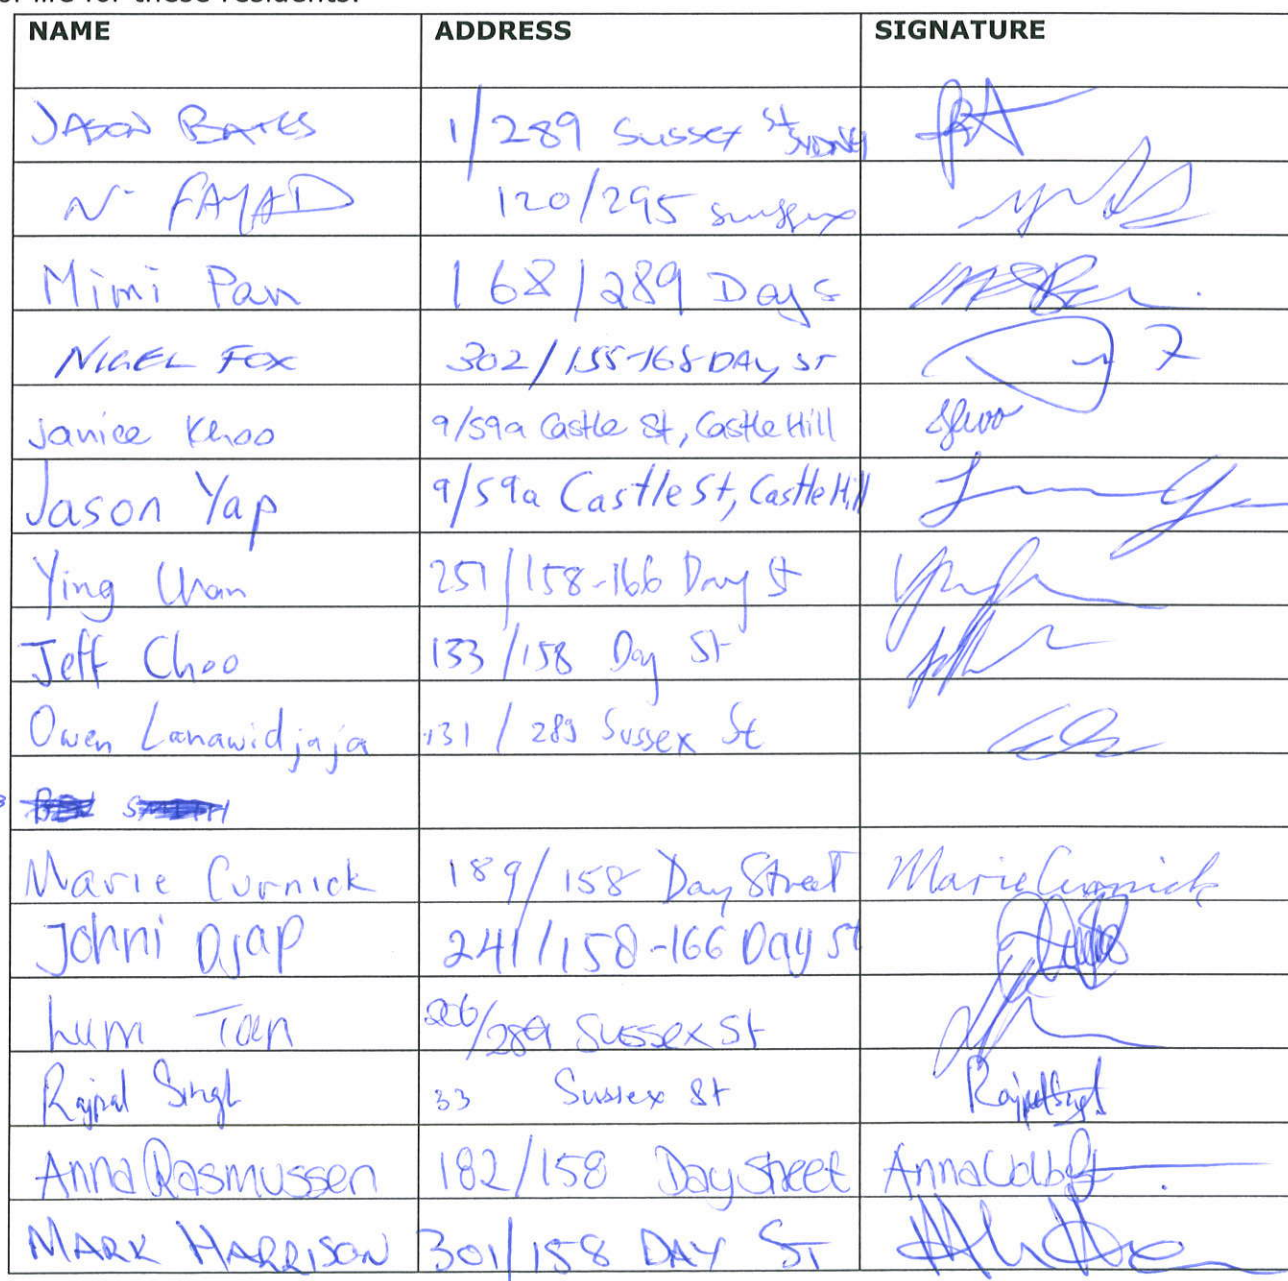 of life for these residents.
NAME ADDRESS SIGNATURE
JASON BATES 1/289 Sussex St SYDNEY
N. FAYAD 120/295 Sussex
Mimi Pan 168/289 Day S
NIGEL FOX 302/155-168 DAY ST
Janice Khoo 9/59a Castle St, Castle Hill
Jason Yap 9/59a Castle St, Castle Hill
Ying Chan 251/158-166 Day St
Jeff Choo 133/158 Day St
Owen Lanawidjaja 131/289 Sussex St
Marie Curnick 189/158 Day Street Marie Curnick
Johni Djap 241/158-166 Day St
Lum Tan 206/289 Sussex St
Rajpal Singh 33 Sussex St Rajpal Singh
Anna Rasmussen 182/158 Day Street Anna
MARK HARRISON 301/158 DAY ST